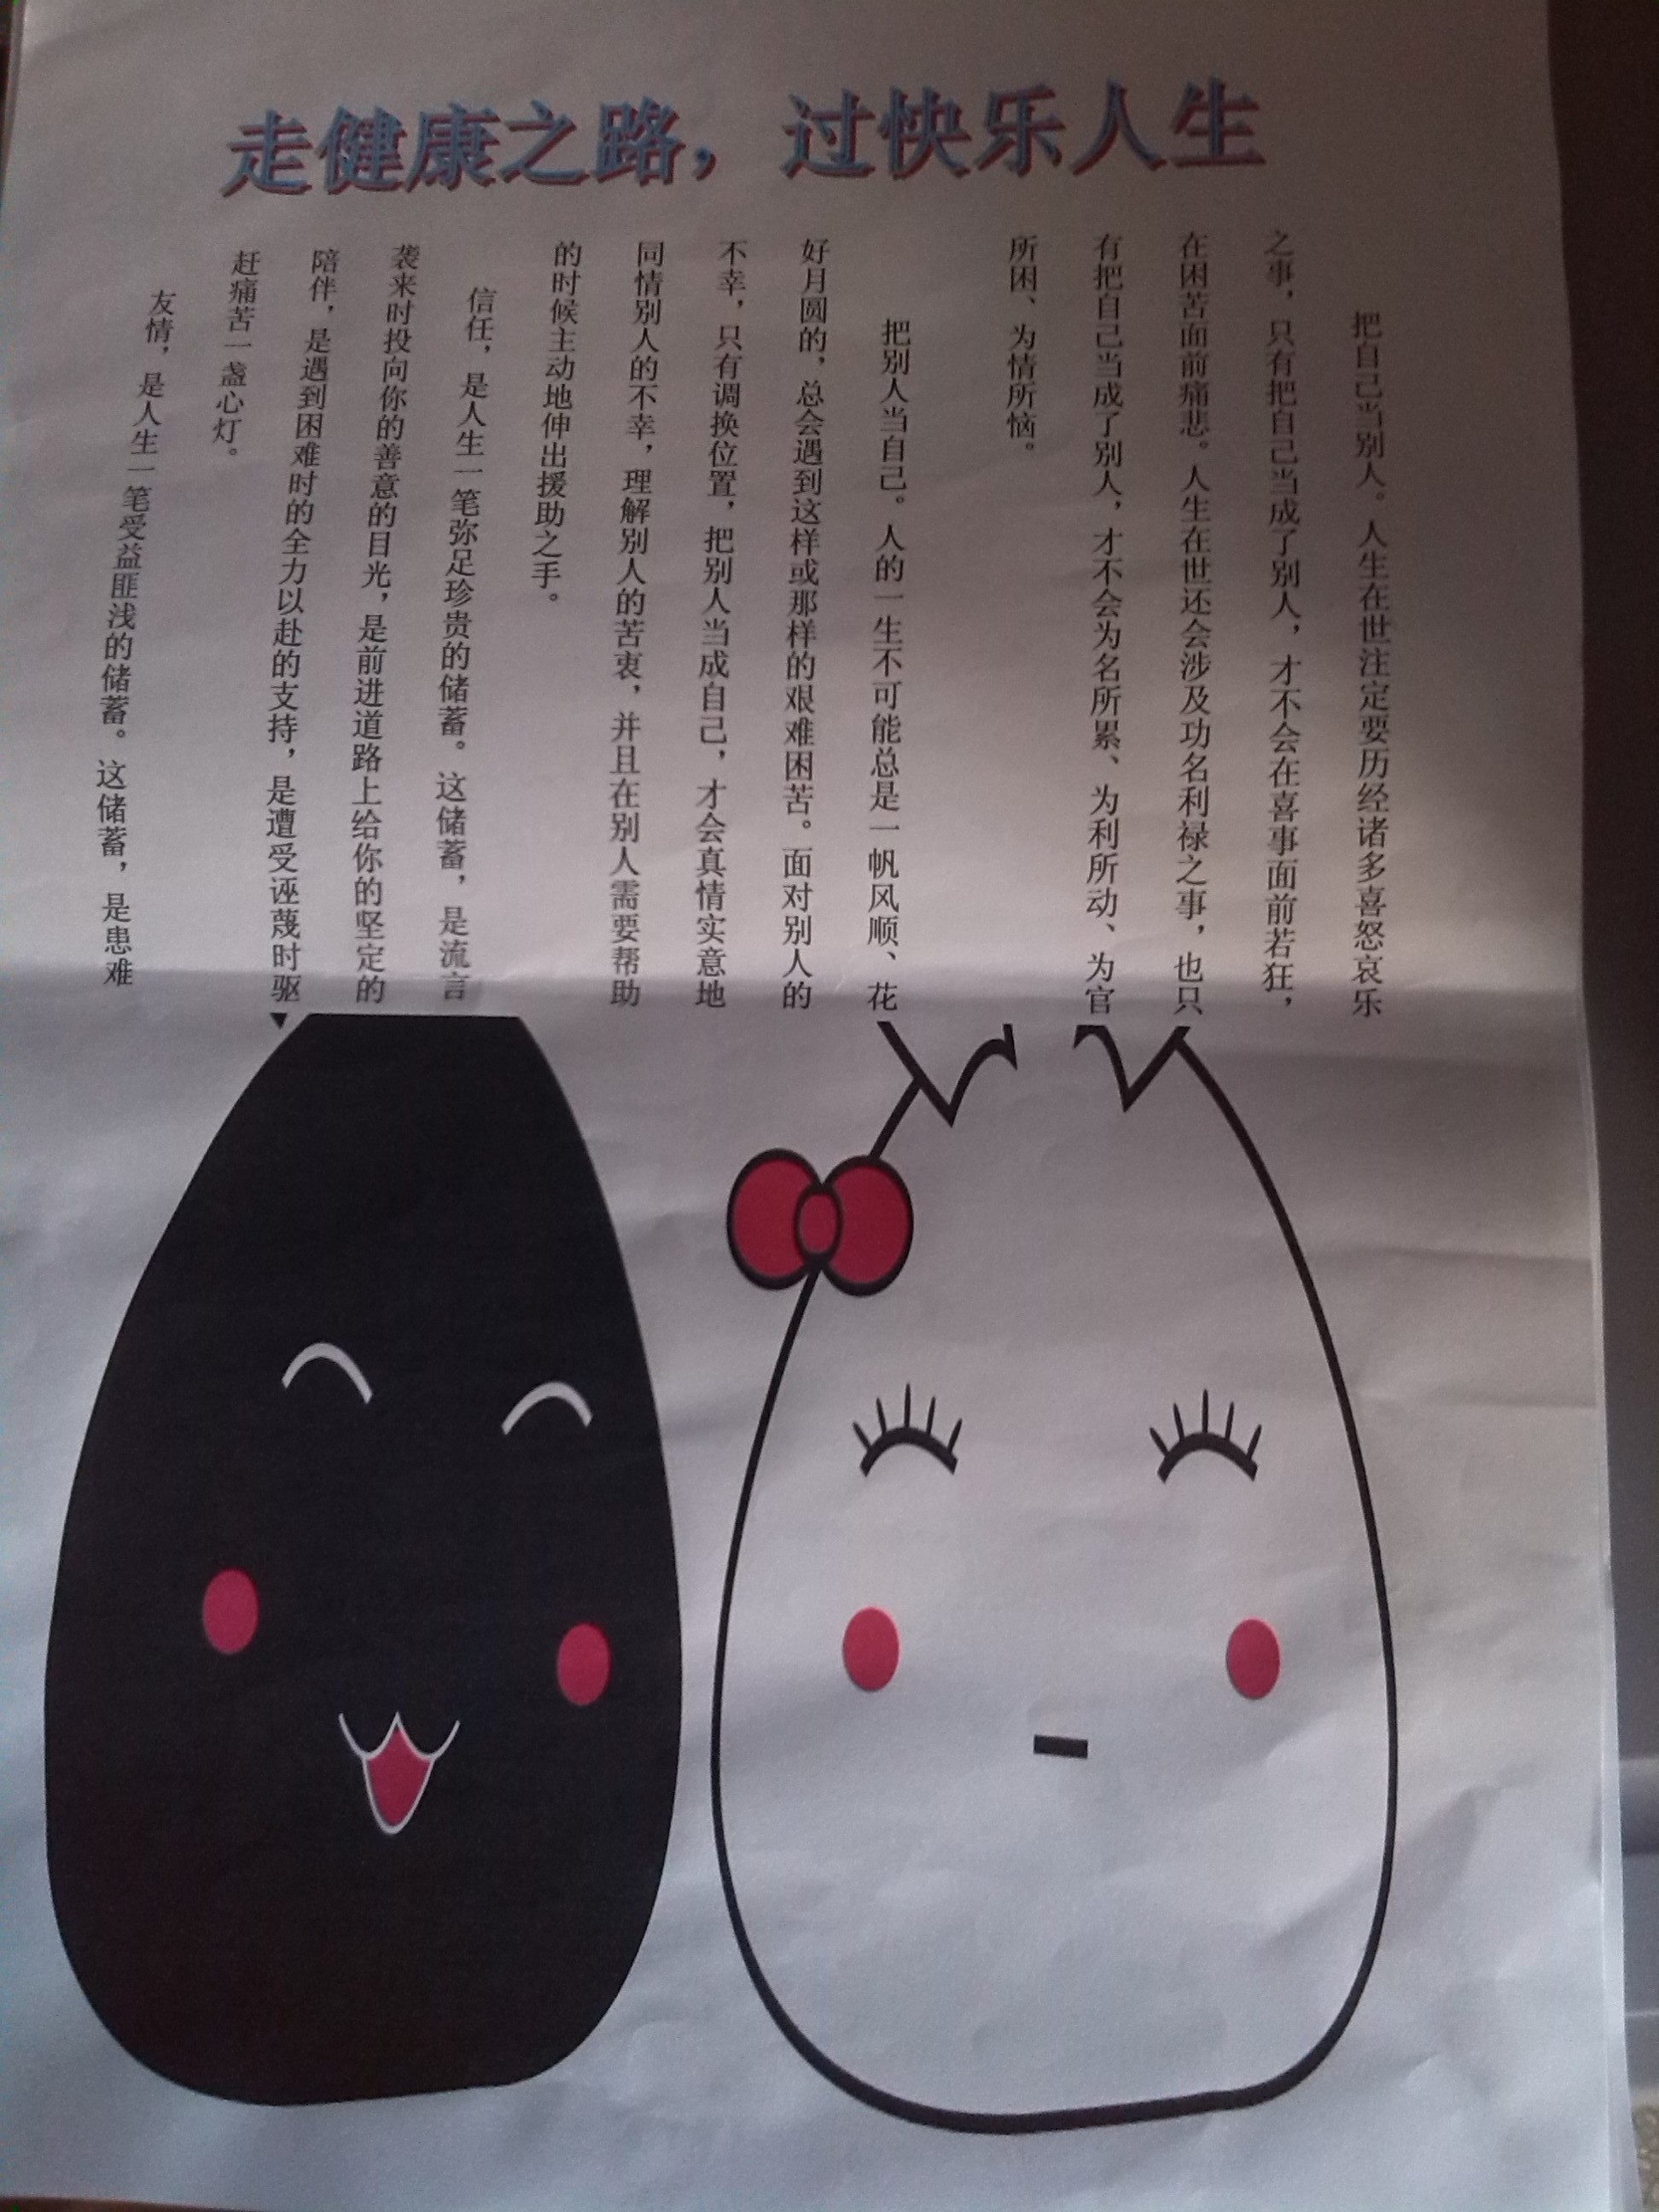 走健康之路，过快乐人生
把自己当别人。人生在世注定要历经诸多喜怒哀乐
之事，只有把自己当成了别人，才不会在喜事面前若狂，
在困苦面前痛悲。人生在世还会涉及功名利禄之事，也只
有把自己当成了别人，才不会为名所累、为利所动、为官
所困、为情所恼。
把别人当自己。人的一生不可能总是一帆风顺、花
好月圆的，总会遇到这样或那样的艰难困苦。面对别人的
不幸，只有调换位置，把别人当成自己，才会真情实意地
同情别人的不幸，理解别人的苦衷，并且在别人需要帮助
的时候主动地伸出援助之手。
信任，是人生一笔弥足珍贵的储蓄。这储蓄，是流言
袭来时投向你的善意的目光，是前进道路上给你的坚定的
陪伴，是遇到困难时的全力以赴的支持，是遭受诬蔑时驱
赶痛苦一盏心灯。
友情，是人生一笔受益匪浅的储蓄。这储蓄，是患难